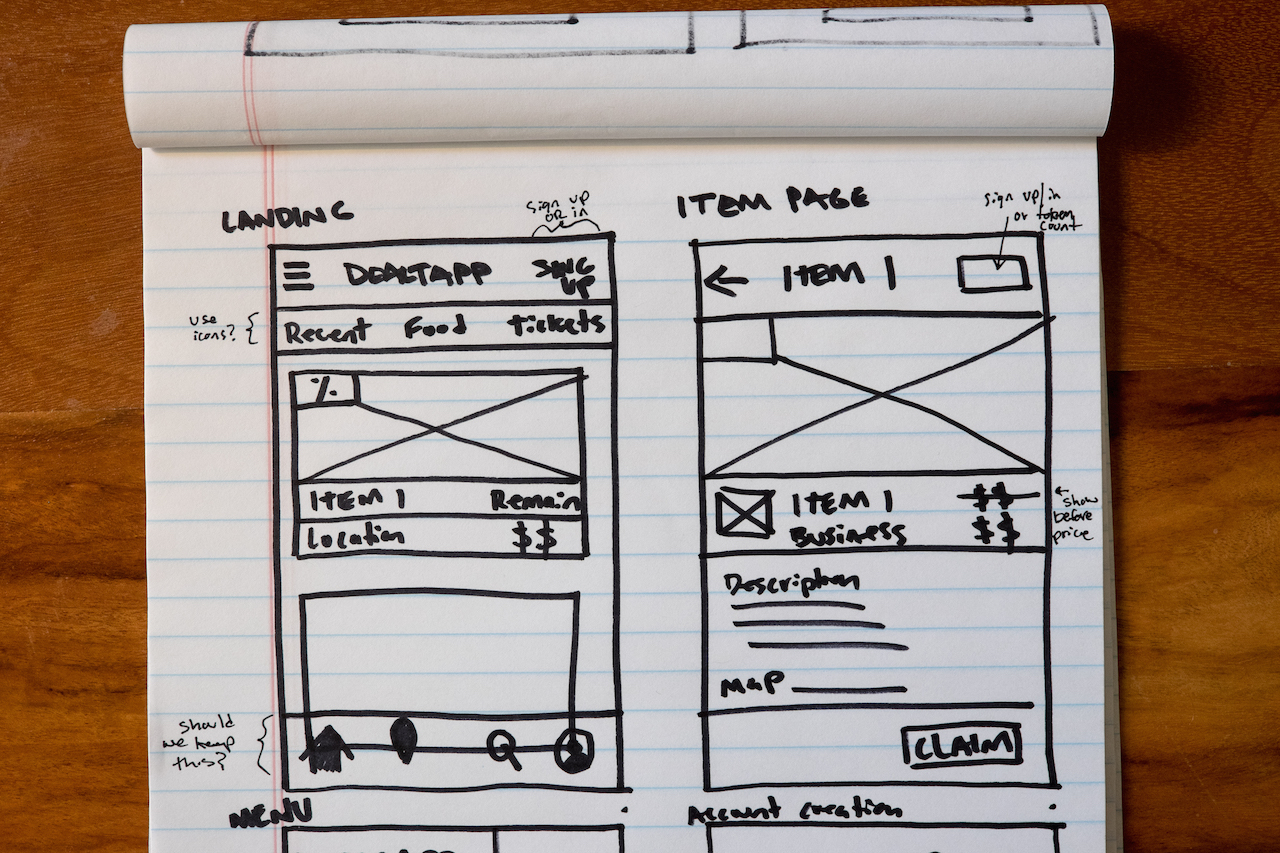 LANDING
sign up
OR in
DEALTAPP
SING
UP
use
icons?
Recent Food tickets
%
ITEM 1 Remain
Location $$
should
we keep
this?
ITEM PAGE
sign up/in
or token
count
ITEM 1
ITEM 1 $$
Business $$
← show
before
price
Description
Map
CLAIM
MENU
Account creation